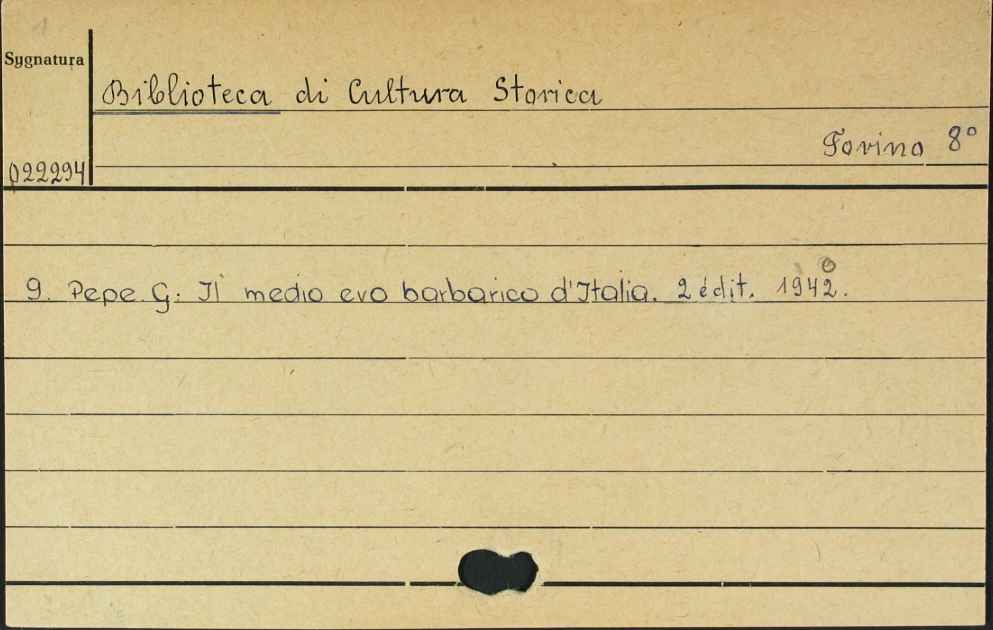 1
Sygnatura
Biblioteca di Cultura Storica
Torino 8°
022294
0
9. Pepe G: Il medio evo barbarico d'Italia. 2 édit. 1942.